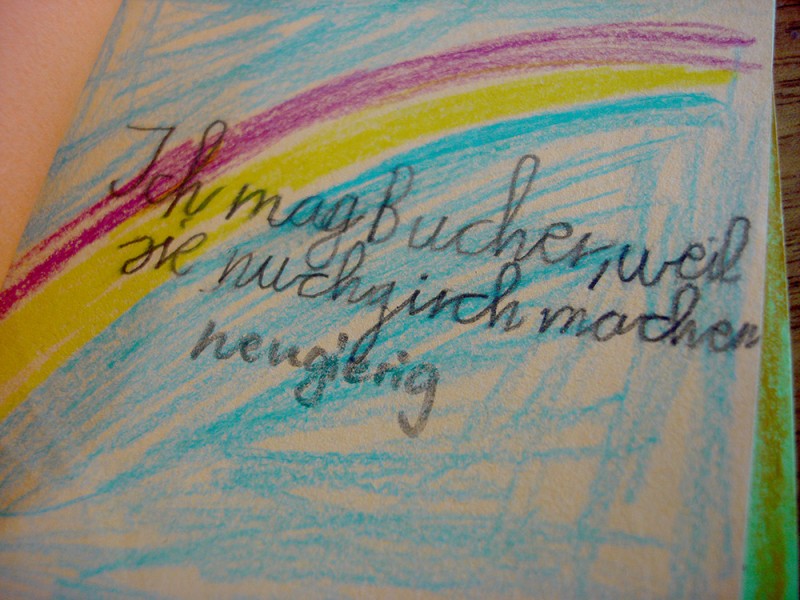 Ich mag Bucher, weil
sie nuchgirch machen
neugierig